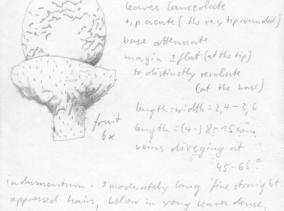 leaves lanceolate
tip acute (the very tip rounded)
base attenuate
margin ± flat (at the tip)
to distinctly revolute
(at the base)
length:width = 2,4-3,6
fruit
6x
length = (4-) 8-15 mm
veins diverging at
45-65°
indumentum: ± moderately long fine straight
appressed hairs, below in young leaves dense,